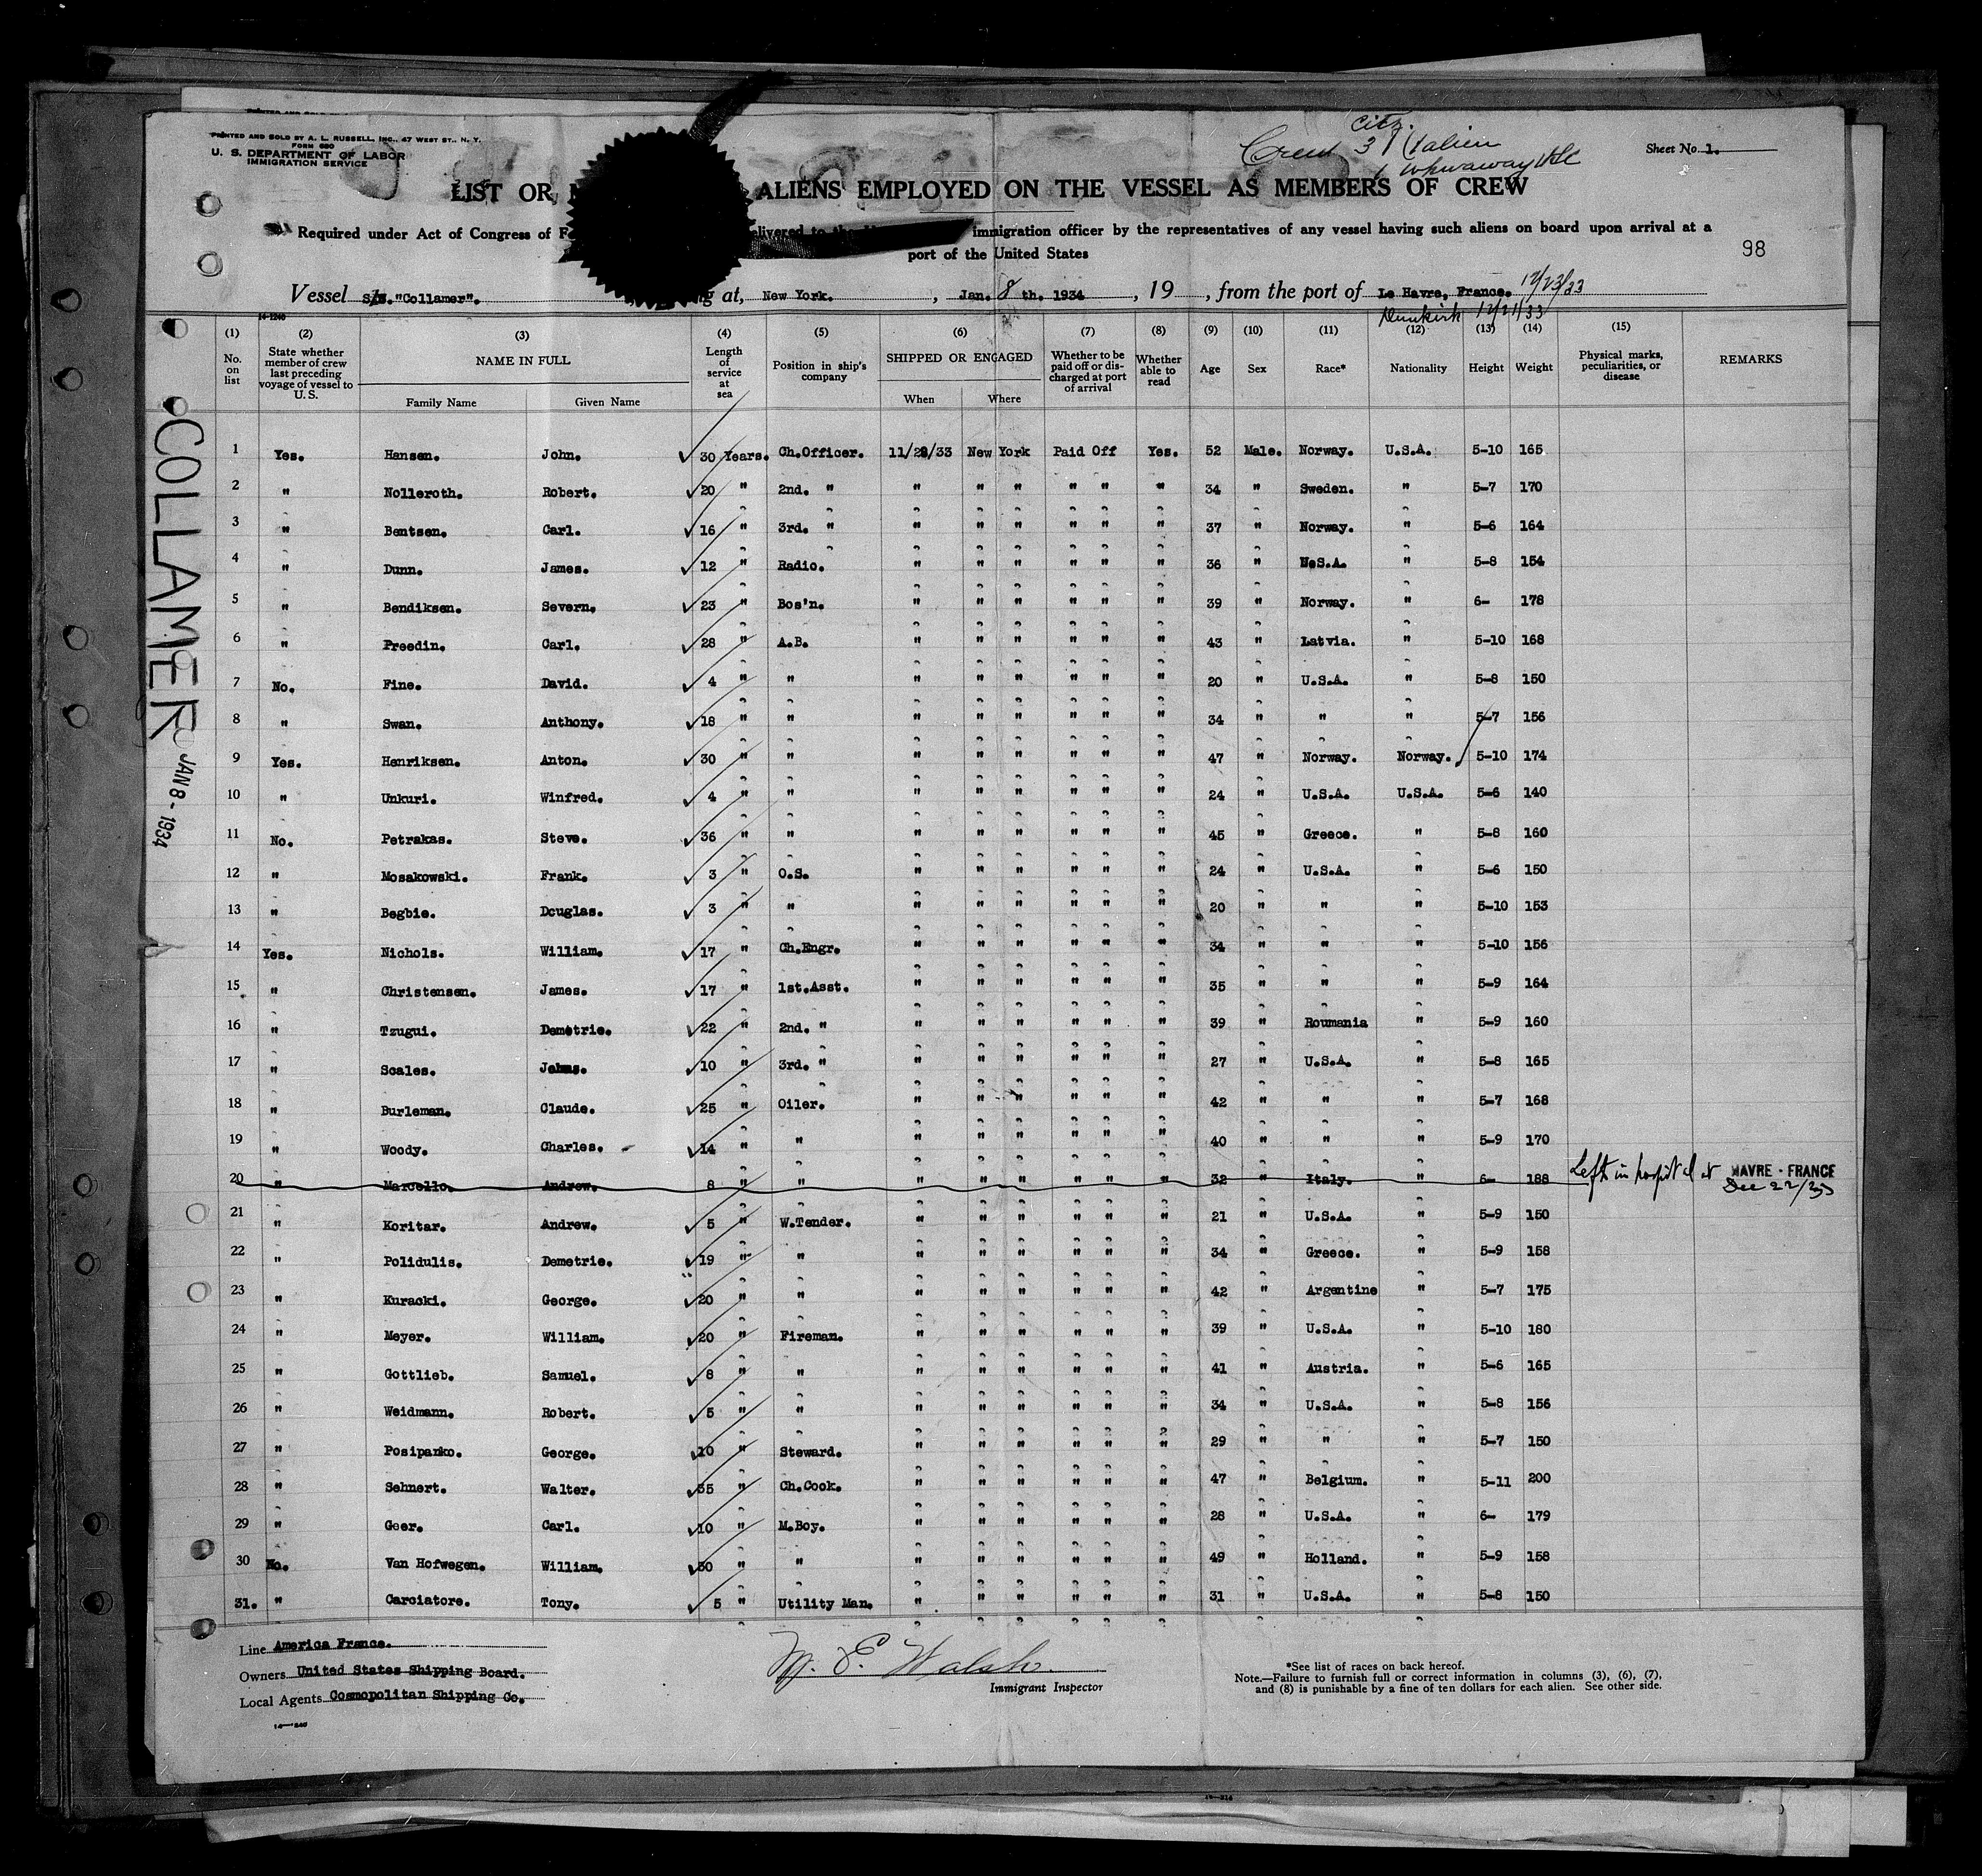 PRINTED AND SOLD BY A. L. RUSSELL, INC., 47 WEST ST., N. Y.
FORM 680
U. S. DEPARTMENT OF LABOR
IMMIGRATION SERVICE
Citz.
Crew 3 1 alien
Sheet No. 1.
LIST OR ALIENS EMPLOYED ON THE VESSEL AS MEMBERS OF CREW
Required under Act of Congress of immigration officer by the representatives of any vessel having such aliens on board upon arrival at a
port of the United States
98
Vessel S/S. "Collamer". at, New York. , Jan. 8 th. 1934 , 19 , from the port of Le Havre, France. 12/23/33
Dunkirk 12/21/33
14-1240
(1) (2) (3) (4) (5) (6) (7) (8) (9) (10) (11) (12) (13) (14) (15)
No. on list State whether member of crew last preceding voyage of vessel to U.S. NAME IN FULL Length of service at sea Position in ship's company SHIPPED OR ENGAGED Whether to be paid off or discharged at port of arrival Whether able to read Age Sex Race* Nationality Height Weight Physical marks, peculiarities, or disease REMARKS
Family Name Given Name When Where
1 Yes. Hansen. John. 30 Years. Ch.Officer. 11/28/33 New York Paid Off Yes. 52 Male. Norway. U.S.A. 5-10 165
2 " Nolleroth. Robert. 20 " 2nd. " " " " " " " 34 " Sweden. " 5-7 170
3 " Bentsen. Carl. 16 " 3rd. " " " " " " " 37 " Norway. " 5-6 164
4 " Dunn. James. 12 " Radio. " " " " " " 36 " U.S.A. " 5-8 154
5 " Bendiksen. Severn. 23 " Bos'n. " " " " " " 39 " Norway. " 6- 178
6 " Preedin. Carl. 28 " A.B. " " " " " " 43 " Latvia. " 5-10 168
7 No. Fine. David. 4 " " " " " " " " 20 " U.S.A. " 5-8 150
8 " Swan. Anthony. 18 " " " " " " " " 34 " " " 5-7 156
9 Yes. Henriksen. Anton. 30 " " " " " " " " 47 " Norway. Norway. 5-10 174
10 " Unkuri. Winfred. 4 " " " " " " " " 24 " U.S.A. U.S.A. 5-6 140
11 No. Petrakas. Steve. 36 " " " " " " " " 45 " Greece. " 5-8 160
12 " Mosakowski. Frank. 3 " O.S. " " " " " " 24 " U.S.A. " 5-6 150
13 " Begbie. Douglas. 3 " " " " " " " " 20 " " " 5-10 153
14 Yes. Nichols. William. 17 " Ch.Engr. " " " " " " 34 " " " 5-10 156
15 " Christensen. James. 17 " 1st.Asst. " " " " " " 35 " " " 5-9 164
16 " Tzugui. Demetrie. 22 " 2nd. " " " " " " " 39 " Roumania " 5-9 160
17 " Scales. 10 " 3rd. " " " " " " " 27 " U.S.A. " 5-8 165
18 " Burleman. Claude. 25 " Oiler. " " " " " " 42 " " " 5-7 168
19 " Woody. Charles. 14 " " " " " " " " 40 " " " 5-9 170
20 " Marcello. Andrew. 8 " " " " " " " " 32 " Italy. " 6- 188 Left in hospital at HAVRE - FRANCE
Dec 22/33
21 " Koritar. Andrew. 5 " W.Tender. " " " " " " 21 " U.S.A. " 5-9 150
22 " Polidulis. Demetrie. 19 " " " " " " " " 34 " Greece. " 5-9 158
23 " Kuracki. George. 20 " " " " " " " " 42 " Argentine " 5-7 175
24 " Meyer. William. 20 " Fireman. " " " " " " 39 " U.S.A. " 5-10 180
25 " Gottlieb. Samuel. 8 " " " " " " " " 41 " Austria. " 5-6 165
26 " Weidmann. Robert. 5 " " " " " " " " 34 " U.S.A. " 5-8 156
27 " Posipanko. George. 10 " Steward. " " " " " " 29 " " " 5-7 150
28 " Sehnert. Walter. 35 " Ch.Cook. " " " " " " 47 " Belgium. " 5-11 200
29 " Geer. Carl. 10 " M.Boy. " " " " " " 28 " U.S.A. " 6- 179
30 No. Van Hofwegen. William. 30 " " " " " " " " 49 " Holland. " 5-9 158
31. " Carciatore. Tony. 5 " Utility Man. " " " " " " 31 " U.S.A. " 5-8 150
COLLAMER JAN 8 - 1934
Line America France.
Owners United States Shipping Board.
Local Agents Cosmopolitan Shipping Co.
W. E. Walsh.
Immigrant Inspector
*See list of races on back hereof.
Note.—Failure to furnish full or correct information in columns (3), (6), (7),
and (8) is punishable by a fine of ten dollars for each alien. See other side.
14—1240